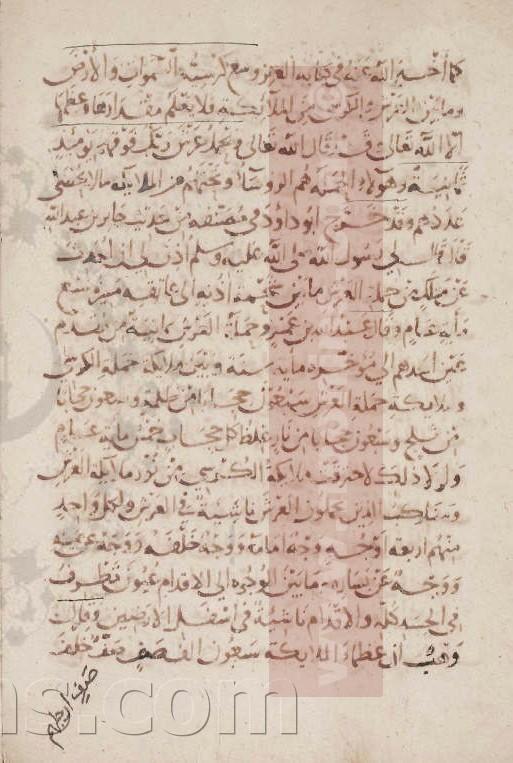 كما أخبر الله عنه في كتابه العزيز وسع كرسيه السموات والأرض
وما بين العرش والكرسي من الملائكة فلا يعلم مقدارها وعظمها
الا الله تعالى فقد قال الله تعالى ويحمل عرش ربك فوقهم يومئذ
ثمانية وهؤلاء الخمسة هم الروسا وتحتهم من الملايكة مالا يحصى
عددهم وقد خرج ابو داود في مصنفه من حديث جابر بن عبد الله
قال قال لي رسول الله صلى الله عليه وسلم أذن لي أن أحدث
عن ملك من حملة العرش ما بين شحمة أذنه الى عاتقه مسيرة سبع
ماية عام وقال عبد الله بن عمر وحملة العرش ثمانية من مقدم
عين أحدهم الى مؤخره ماية سنة وبين ملائكة حملة الكرسي
وملايكة حملة العرش سبعون حجابا من ظلمة وسبعون حجابا
من ثلج وسبعون حجابا من نار غلظ كل حجاب خمس ماية عام
ولولا ذلك لاحترقت ملايكة الكرسي من نور ملايكة العرش
الذين يحملون العرش ثمانية في العرش ولكل واحد
منهم اربعة أوجه وجه أمامه ووجه خلفه ووجه عن يمينه
ووجه عن يساره ما بين الوجوه الى الاقدام عيون تنظر في
في الجسد كله والاقدام ثابتة في أسفل الارضين وقال
وهب ان عظماء الملايكة سبعون الف صف صف خلف
صف
ns.com
www.